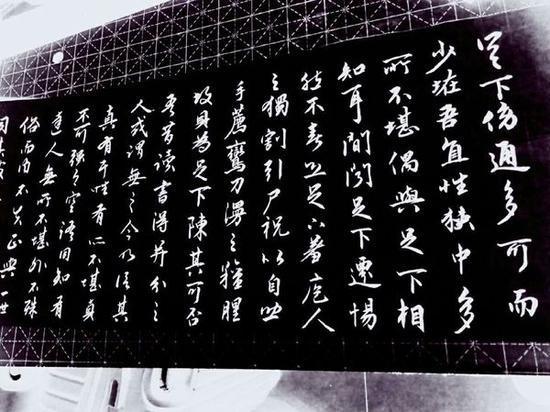 足下傍通多可而
少怪吾直性狹中多
所不堪偶與足下相
知耳間聞足下遷惕
然不喜恐足下羞庖人
之獨割引尸祝以自助
手薦鸞刀漫之羶腥
故具為足下陳其可否
吾昔讀書得并介之
人或謂無之今乃信其
真有耳性有所不堪真
不可強今空語同知有
達人無所不堪外不殊
俗而內不失正與一世
同其